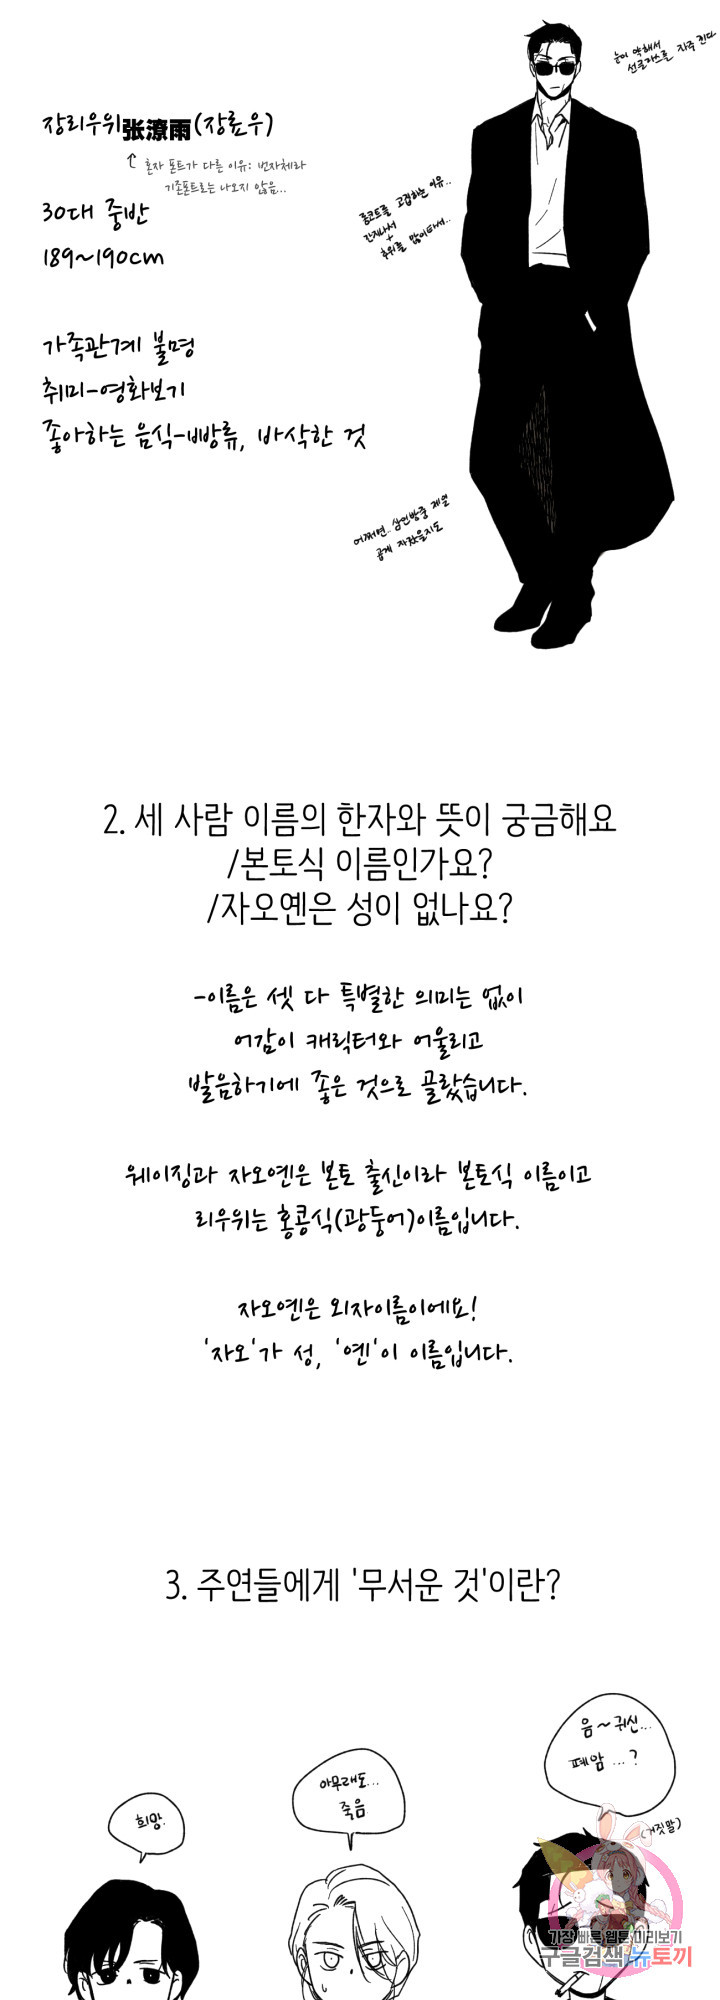 눈이 약해서
선글라스를 자주 낀다
장리우위张潦雨(장료우)
혼자 폰트가 다른 이유: 번자체라
기존폰트로는 나오지 않음...
30대 중반
189~190cm
롱코트를 고집하는 이유..
간지나서
+
추위를 많이타서..
가족관계 불명
취미-영화보기
좋아하는 음식-빵류, 바삭한 것
어쩌면.. 삼인방중 제일
곱게 자랐을지도
2. 세 사람 이름의 한자와 뜻이 궁금해요
/본토식 이름인가요?
/자오옌은 성이 없나요?
-이름은 셋 다 특별한 의미는 없이
어감이 캐릭터와 어울리고
발음하기에 좋은 것으로 골랐습니다.
웨이징과 자오옌은 본토 출신이라 본토식 이름이고
리우위는 홍콩식(광둥어)이름입니다.
자오옌은 외자이름이에요!
'자오'가 성, '옌'이 이름입니다.
3. 주연들에게 '무서운 것'이란?
음~귀신...
폐암 ...?
(거짓말)
아무래도...
죽음
희망.
가장 빠른 웹툰 미리보기
구글검색:뉴토끼